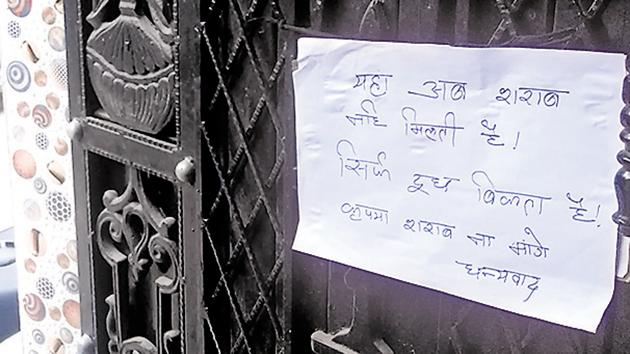 यहा अब शराब
नहि मिलती है!
सिर्फ दूध बिकता है!
कृपया शराब ना मांगे
धन्यवाद